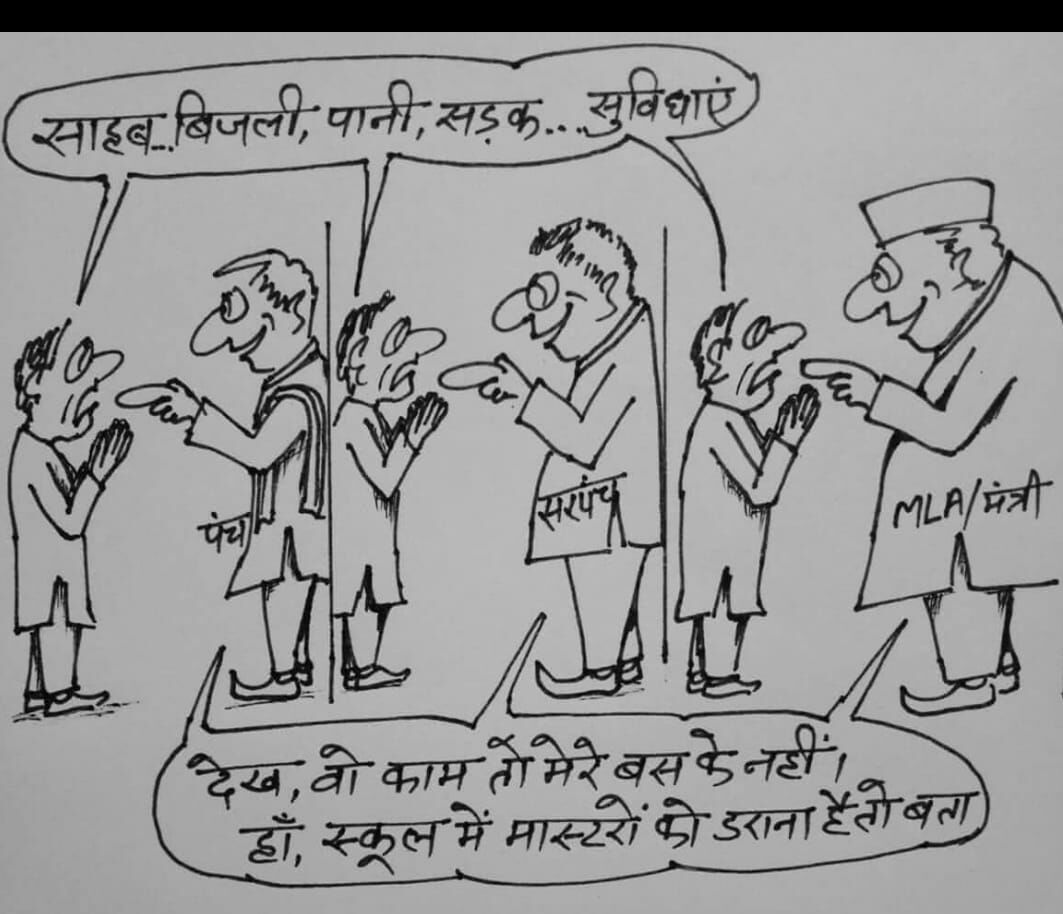 साहब...बिजली, पानी, सड़क....सुविधाएं
पंच
सरपंच
MLA/मंत्री
देख, वो काम तो मेरे बस के नहीं।
हाँ, स्कूल में मास्टरों को डराना है तो बता